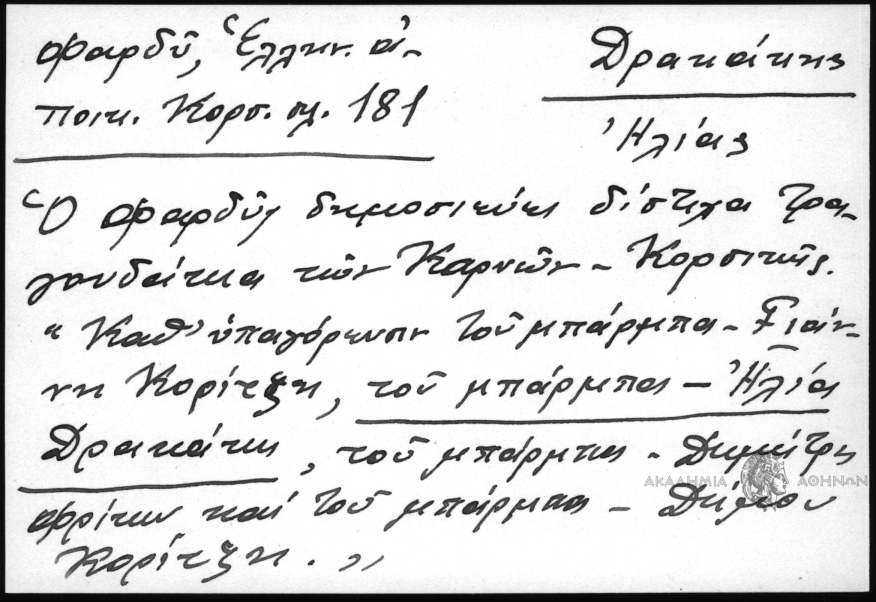 Φαρδῦ, Ἑλλην. ἀ-
ποικ. Κορσ. σελ. 181
Δρακάκης
Ἠλίας
Ὁ Φαρδῦς δημοσιεύει δίστιχα τρα-
γουδάκια τῶν Καρυῶν - Κορσικῆς.
"Καθ' ὑπαγόρευσιν τοῦ μπάρμπα - Γιάν-
νη Κορίτζη, τοῦ μπάρμπα - Ἠλία
Δρακάκη, τοῦ μπάρμπα - Δημήτρη
Φρίκη καί τοῦ μπάρμπα - Δήμου
Κορίτζη."
ΑΚΑΔΗΜΙΑ ΑΘΗΝΩΝ